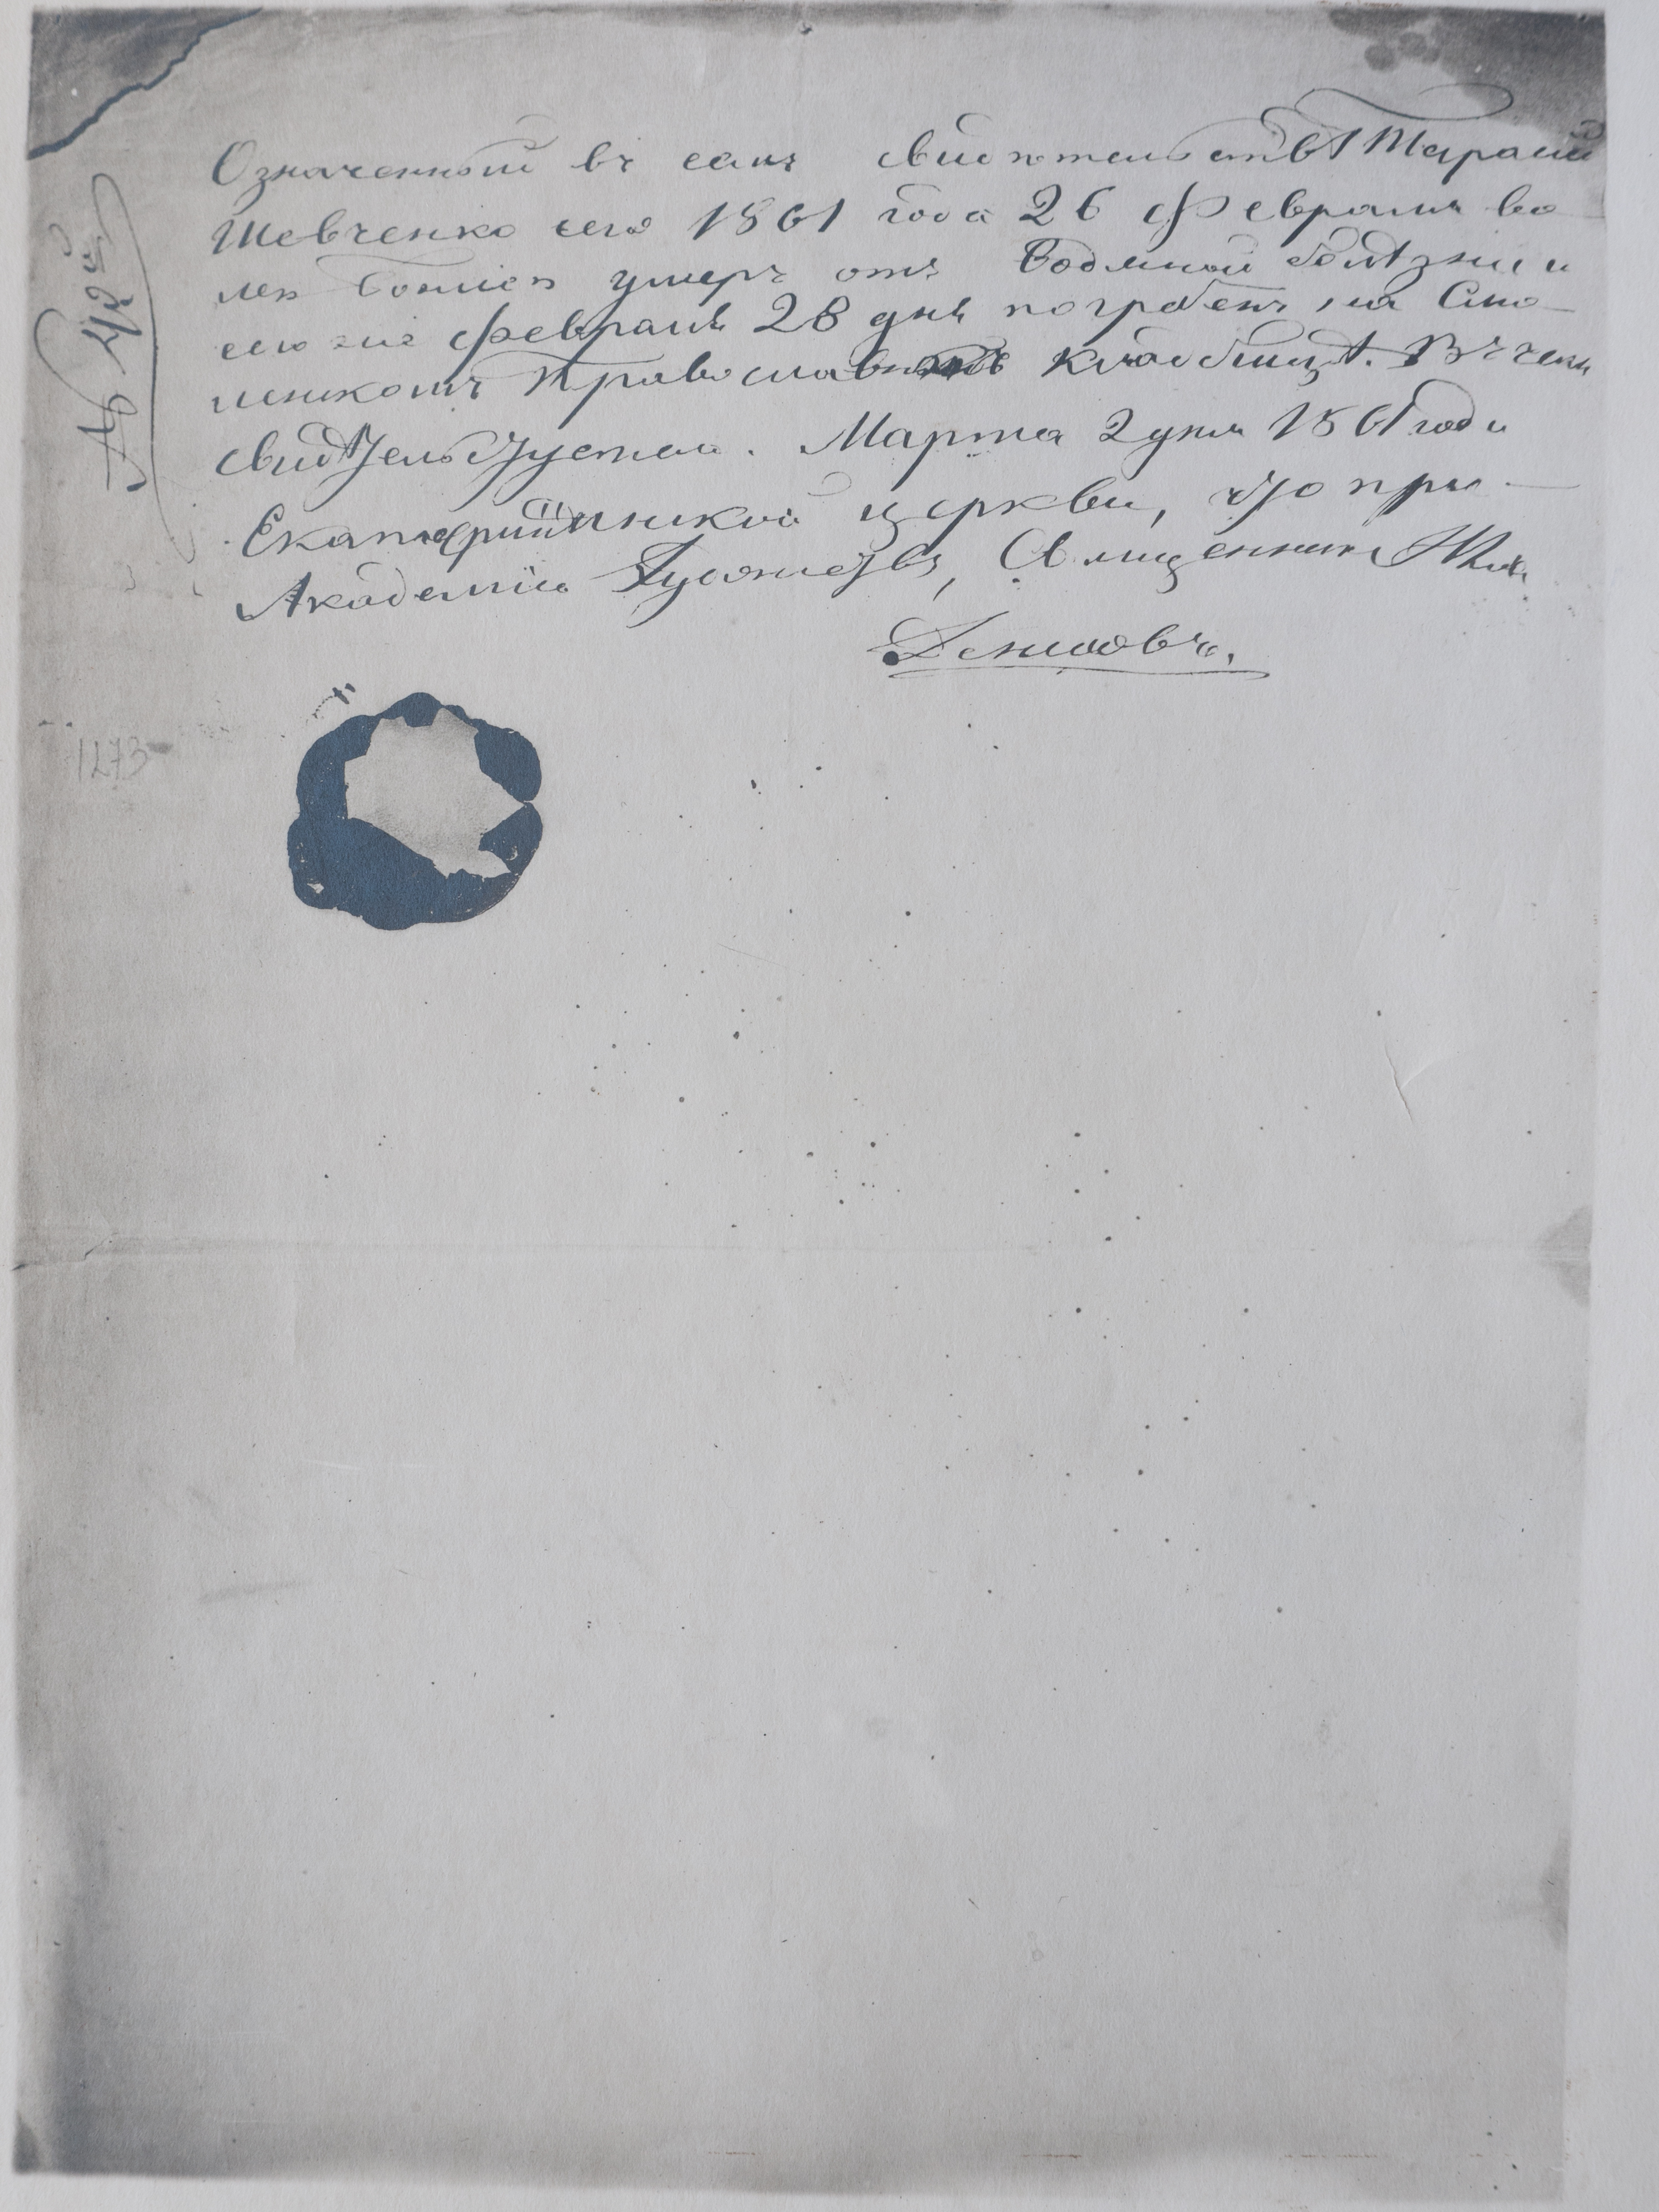 Означенный въ семъ свидѣтельствѣ Тарасъ
Шевченко сего 1861 года 26 Февраля во
лею Божіею умеръ отъ Водяной болѣзни и
сего же Февраля 28 дня погребенъ на Смо-
ленскомъ Православномъ кладбищѣ. Въ чемъ
свидѣтельствую. Марта 2 дня 1861 года
Екатерининской церкви, что при
Академіи Художествъ, Священник
Денисовъ.
1273